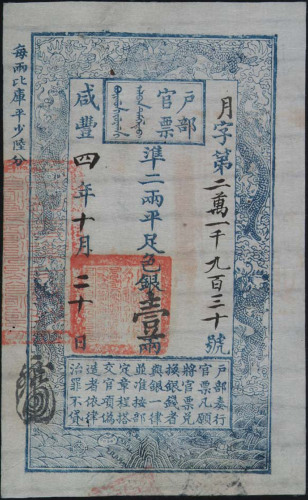 月字第二萬一千九百三十號
戶部
官票
準二兩平足色銀壹兩
咸豐四年十月二十日
每兩比庫平少陸分
戶部奏行
官票凡願
將官票兌
換銀錢者
與銀一律
並准按部
定章程搭
交官項偽
造者依律
治罪不貸